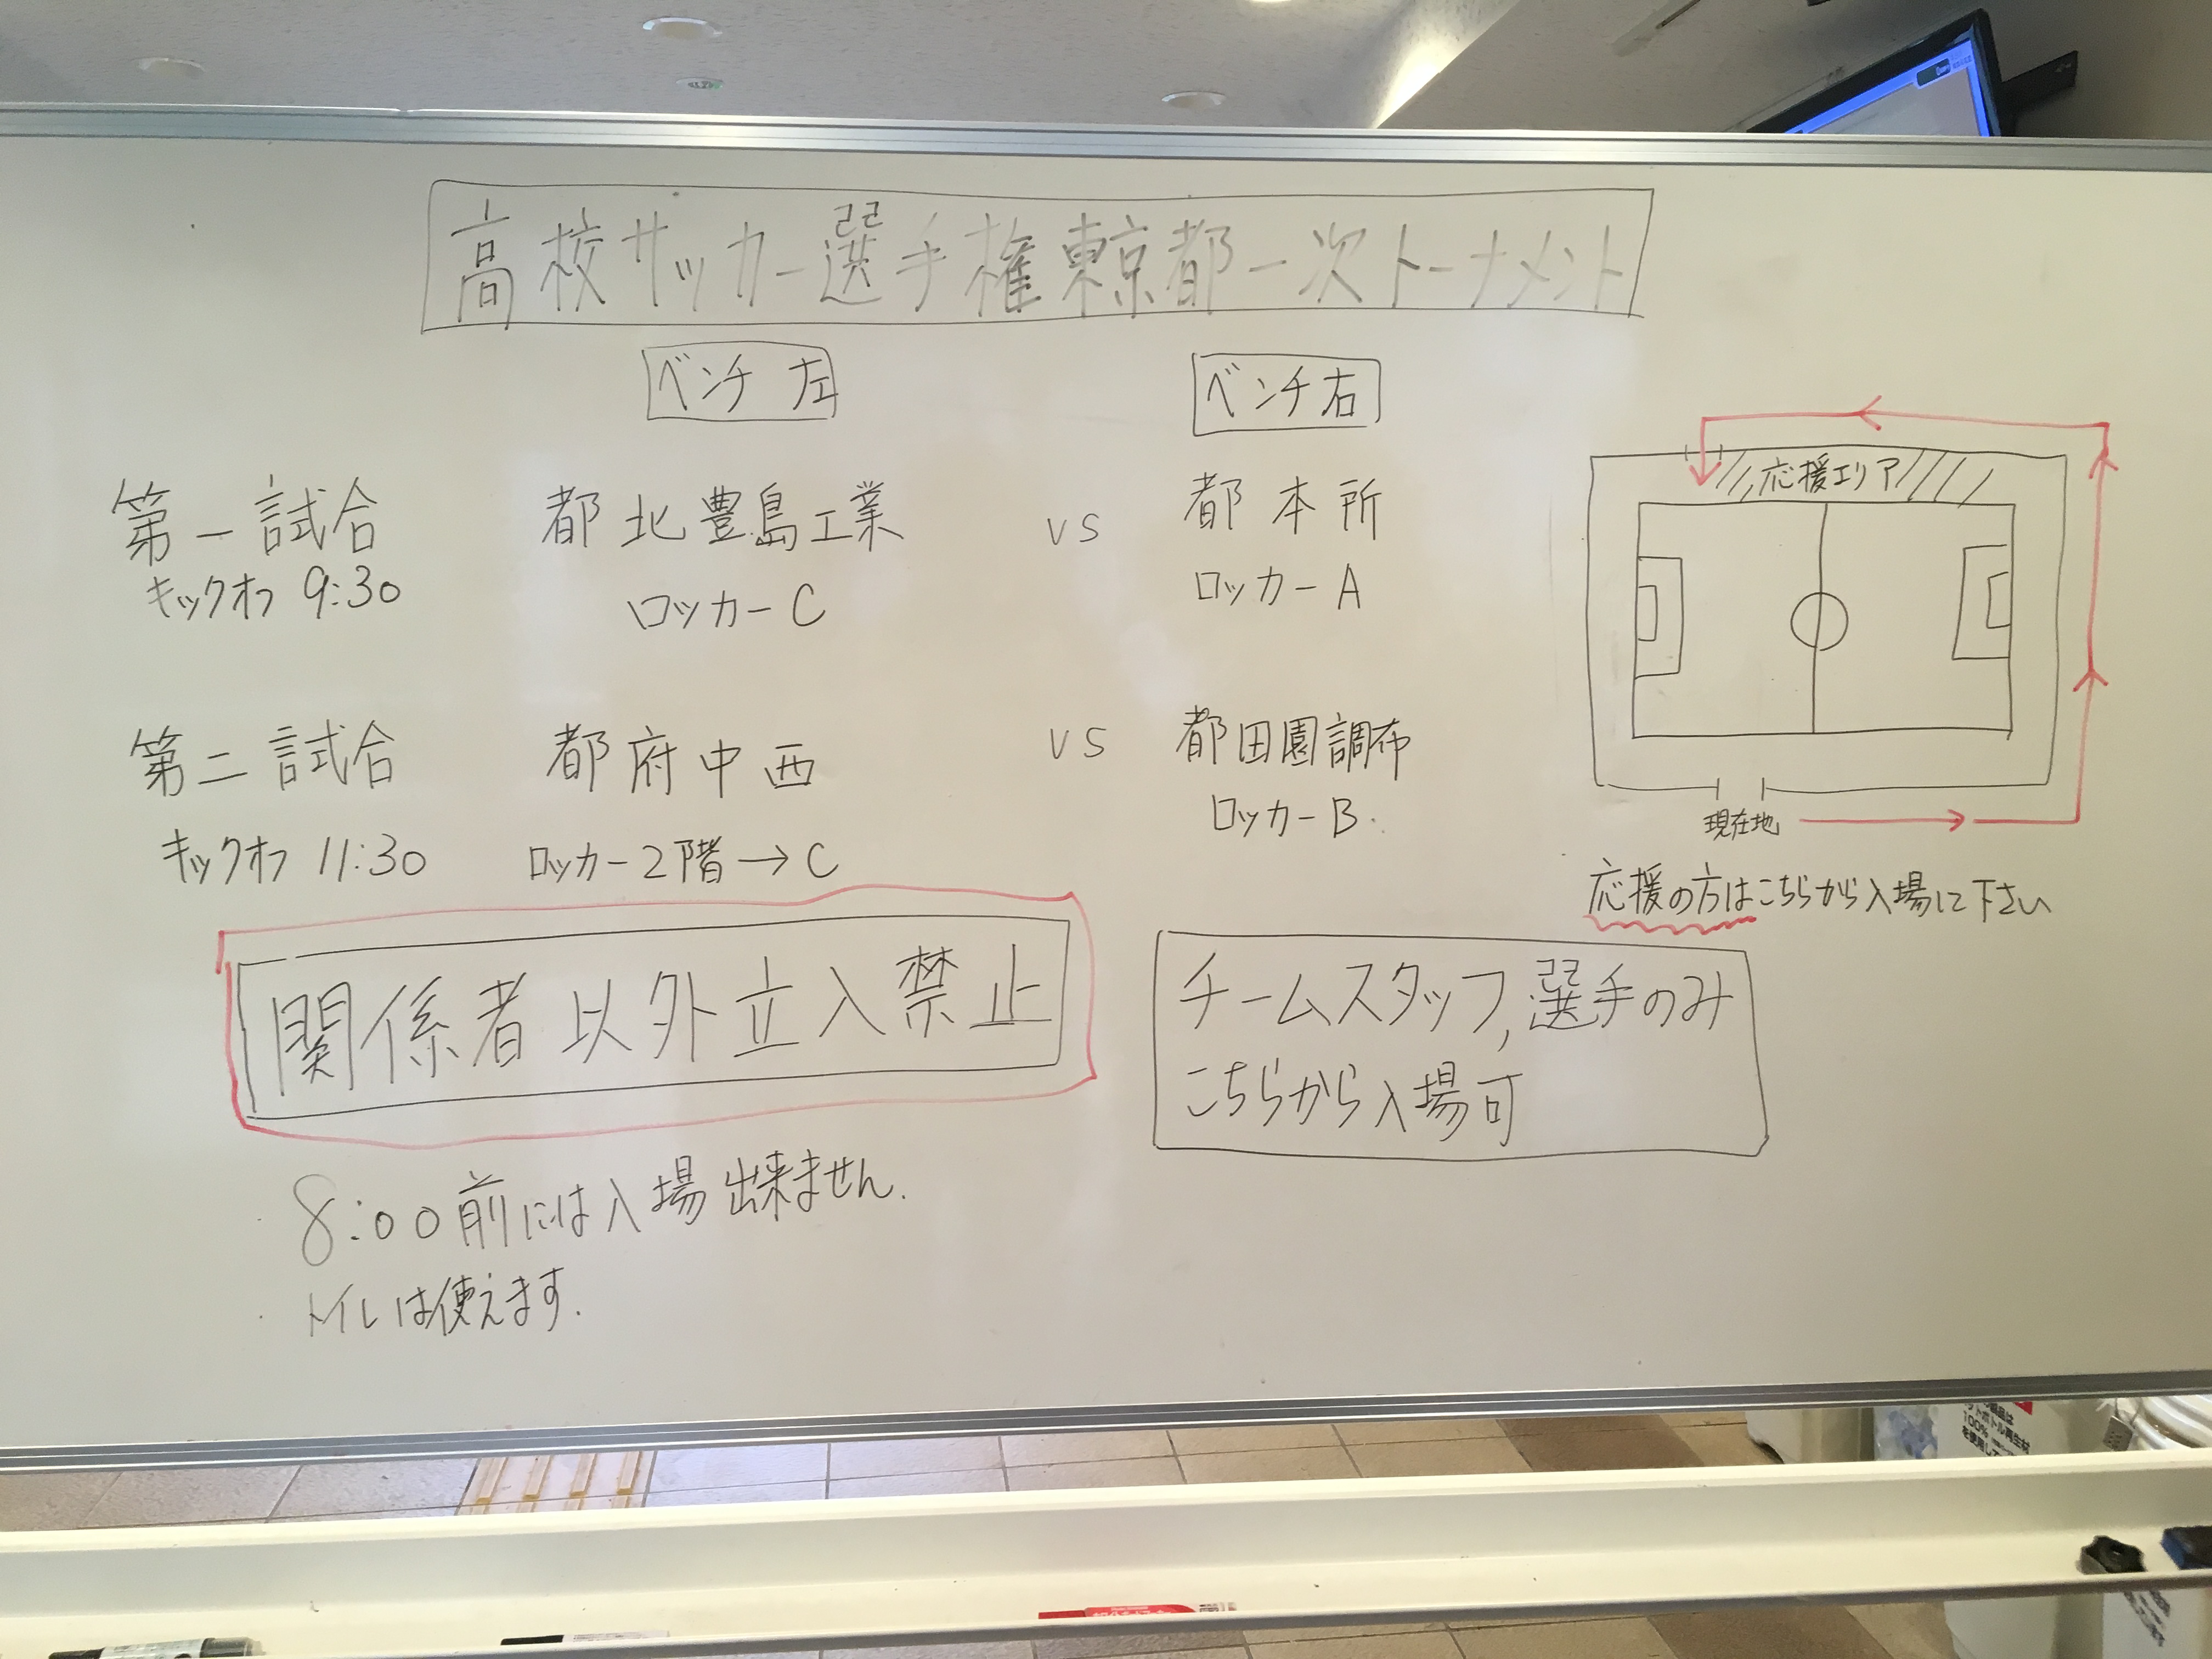 高校サッカー選手権東京都一次トーナメント
ベンチ 左
ベンチ右
第一試合
都北豊島工業
vs
都本所
キックオフ 9:30
ロッカーC
ロッカーA
第二試合
都府中西
vs
都田園調布
キックオフ 11:30
ロッカー2階→C
ロッカーB
応援エリア
現在地
応援の方はこちらから入場して下さい
関係者以外立入禁止
チームスタッフ,選手のみ
こちらから入場可
・8:00前には入場出来ません.
・トイレは使えます.
100%